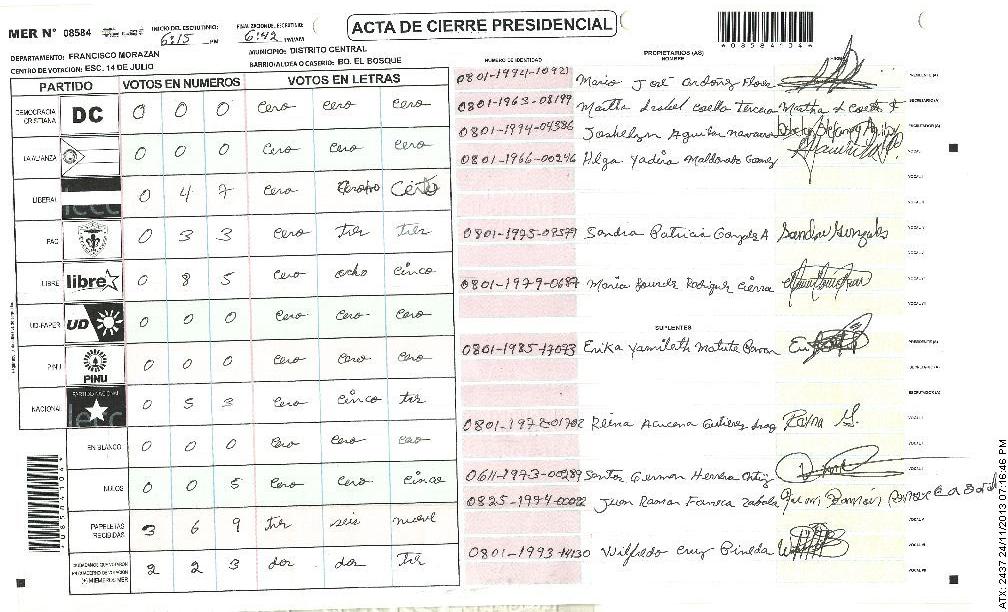 MER N° 08584
INICIO DEL ESCRUTINIO: 6:15 PM
FINALIZACION DEL ESCRUTINIO: 6:42 PM/AM
ACTA DE CIERRE PRESIDENCIAL
*08584104*
DEPARTAMENTO: FRANCISCO MORAZAN
MUNICIPIO: DISTRITO CENTRAL
CENTRO DE VOTACION: ESC. 14 DE JULIO
BARRIO/ALDEA O CASERIO: BO. EL BOSQUE
PARTIDO VOTOS EN NUMEROS VOTOS EN LETRAS
DEMOCRACIA CRISTIANA DC 0 0 0 Cero Cero Cero
LA ALIANZA 0 0 0 Cero Cero Cero
LIBERAL 0 4 7 Cero
PAC 0 3 3 Cero tres tres
LIBRE libre 0 8 5 Cero ocho cinco
UD-FAPER UD 0 0 0 Cero Cero Cero
PINU PINU 0 0 0 Cero Cero Cero
NACIONAL PARTIDO NACIONAL 0 5 3 Cero Cinco tres
EN BLANCO 0 0 0 Cero Cero Cero
NULOS 0 0 5 Cero Cero Cinco
PAPELETAS RECIBIDAS 3 6 9 tres seis nueve
2 2 3 dos dos tres
NUMERO DE IDENTIDAD PROPIETARIOS (AS) NOMBRE FIRMA
0801-1994-10921 Mario Jose Ordoñez Flores PRESIDENTE (A)
0801-1963-08199 Martha Isabel Coello Martha I Coello SECRETARIO (A)
0801-1994-04386 Joshelyn Aguilar ESCRUTADOR (A)
0801-1966-00246 Helga Yadira Maldonado Gomez VOCAL I
0801-1975-02579 Sandra Patricia Gonzales A Sandra Gonzales
0801-1979-0687 Maria Lourdes Rodriguez Cierra
SUPLENTES
0801-1985-17073 Erika Yamileth Matute PRESIDENTE (A)
SECRETARIO (A)
ESCRUTADOR (A)
0801-1972-01702 Reina Azucena Gutierrez Reyna G.
0611-1973-00289 Santos German Herrera Ortiz
0825-1974-00022 Juan Ramon Fonseca Zabala
0801-1993-14130 Wilfredo Cruz Pineda
*08584104*
ATX: 2437 24/11/2013 07:16:46 PM